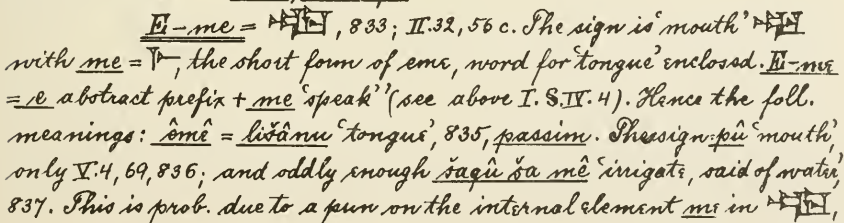 E-me = 𒅴, 833; II.32, 56 c. The sign is 'mouth' 𒅗
with me = 𒈨, the short form of eme, word for 'tongue' enclosed. E-me
= e abstract prefix + me 'speak' (see above I. S. IV. 4). Hence the foll.
meanings: êmê = lišânu 'tongue', 835, passim. The sign = pû 'mouth',
only V.4, 69, 836; and oddly enough šaqû ša mê 'irrigate, said of water,'
837. This is prob. due to a pun on the internal element me in 𒅴,